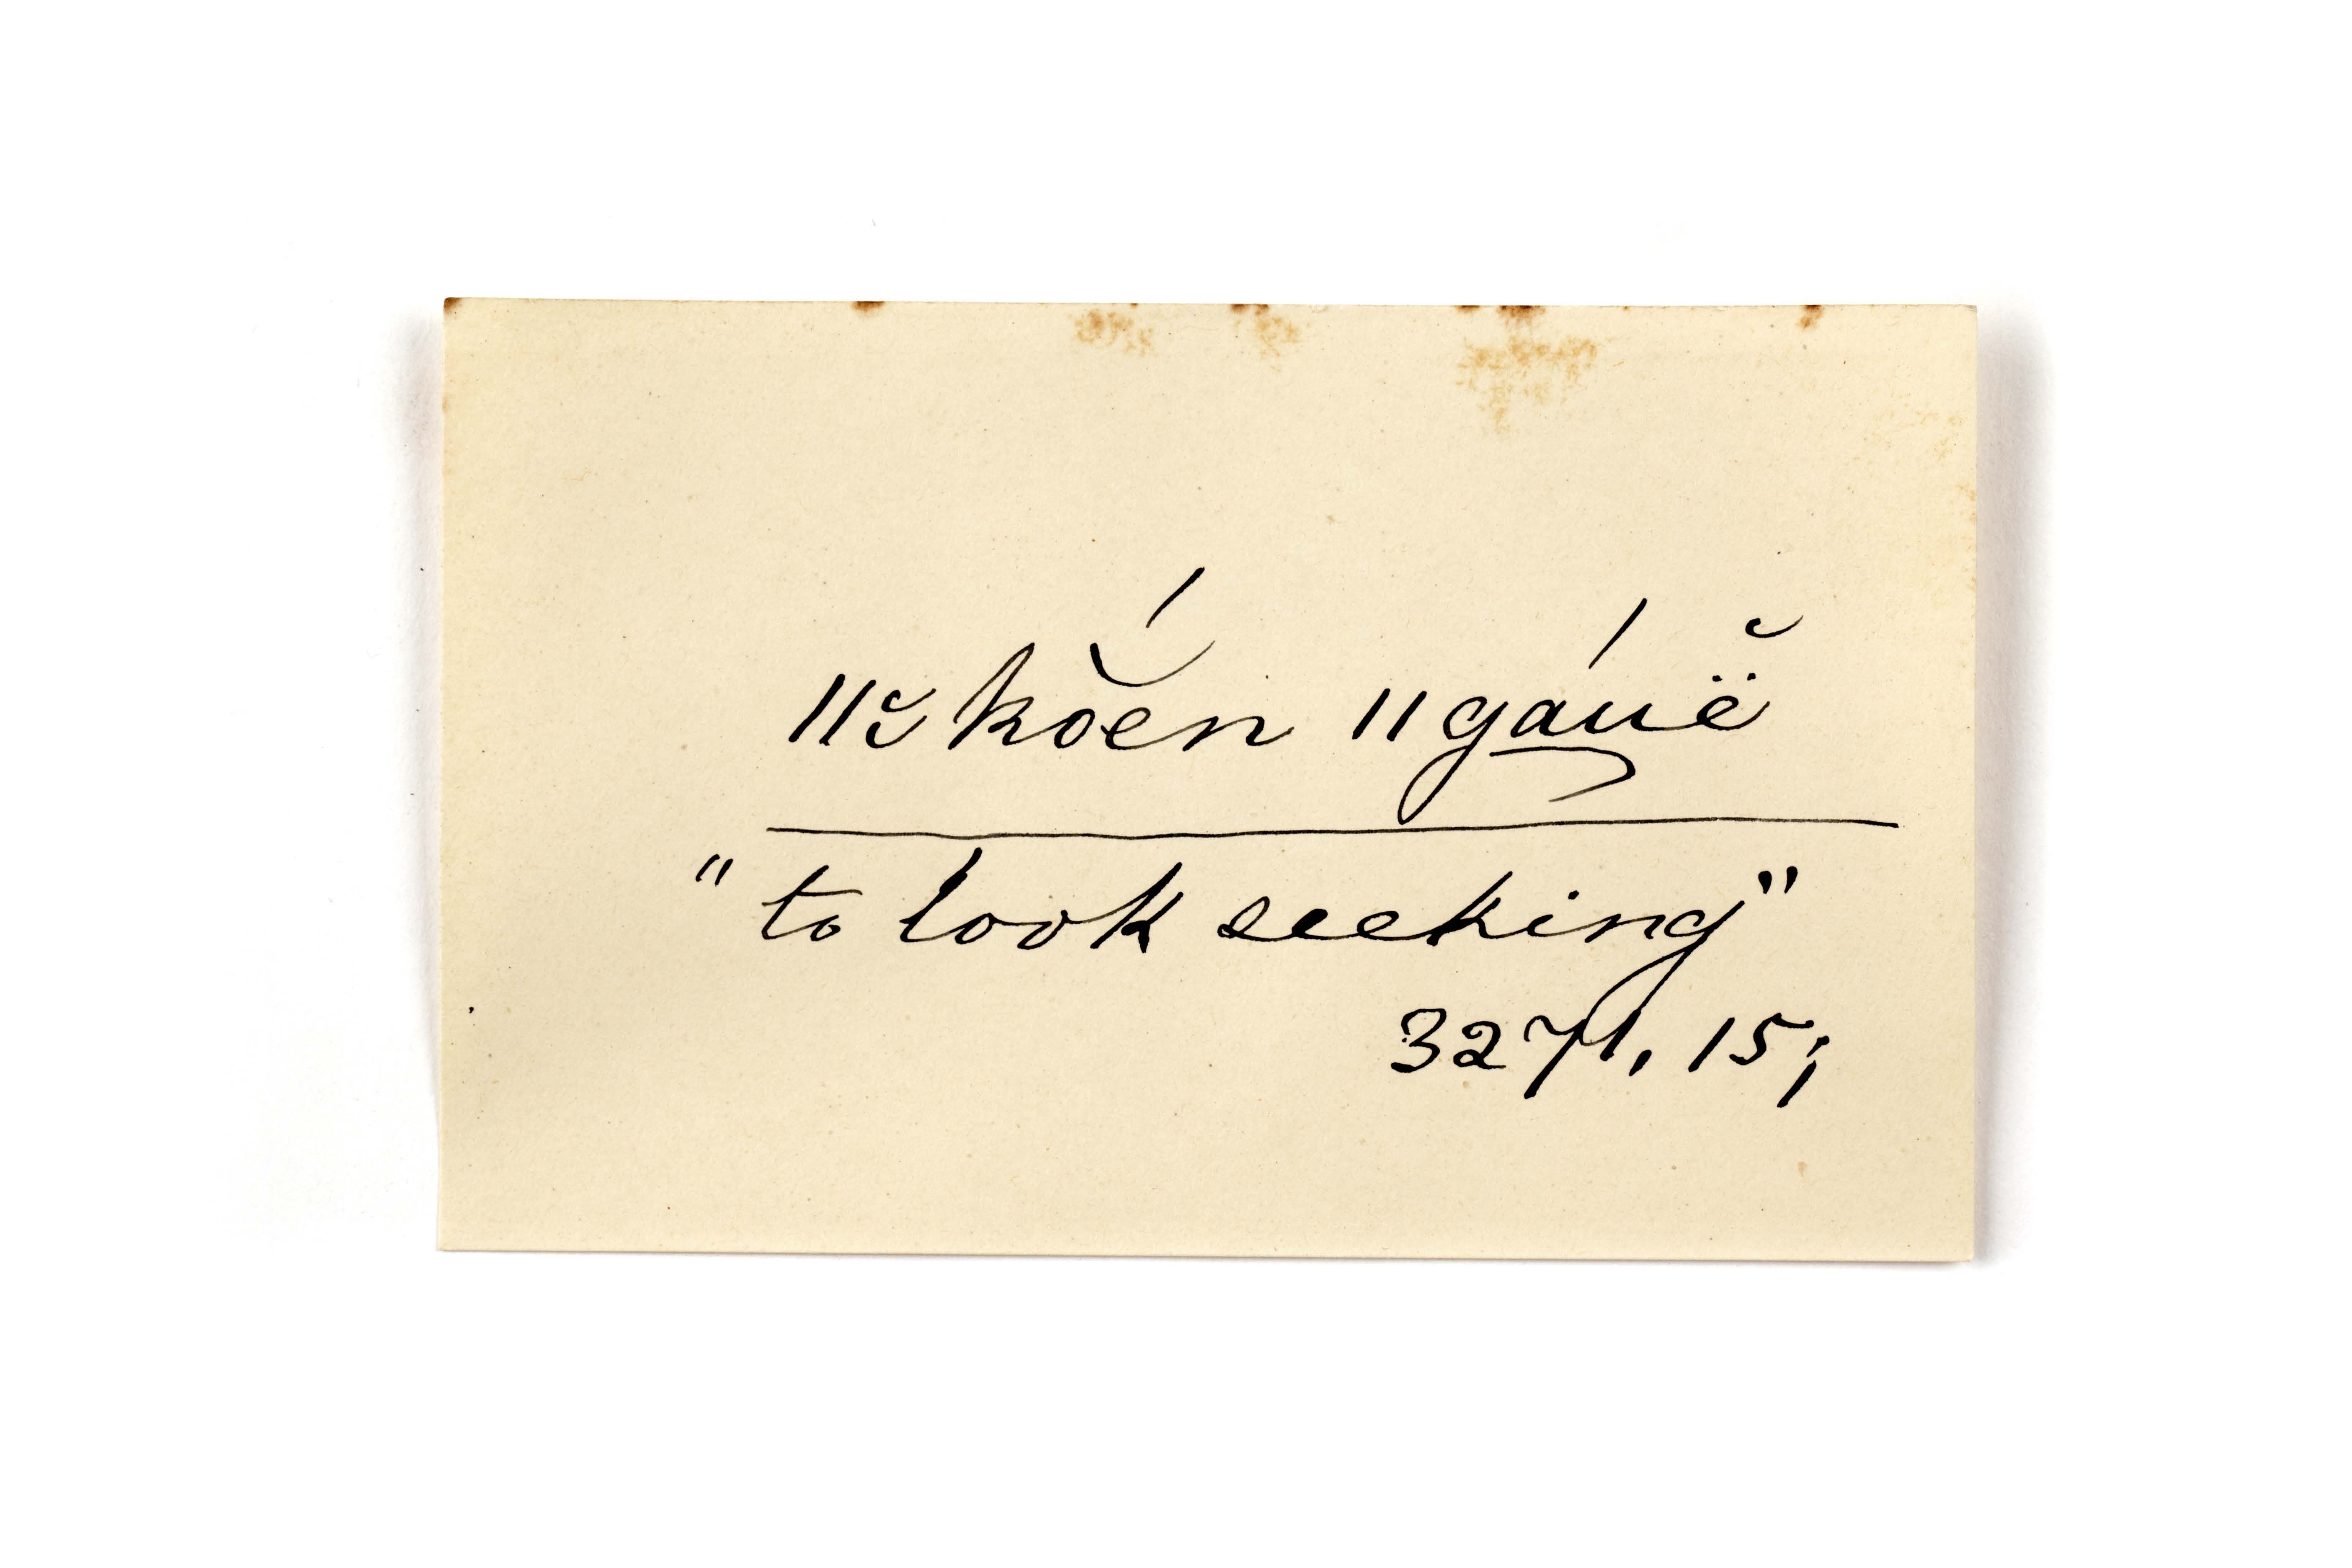 ǁɔ̆ kŏ́ĕn ǁgáṵë̆
"to look seeking"
3271, 15;